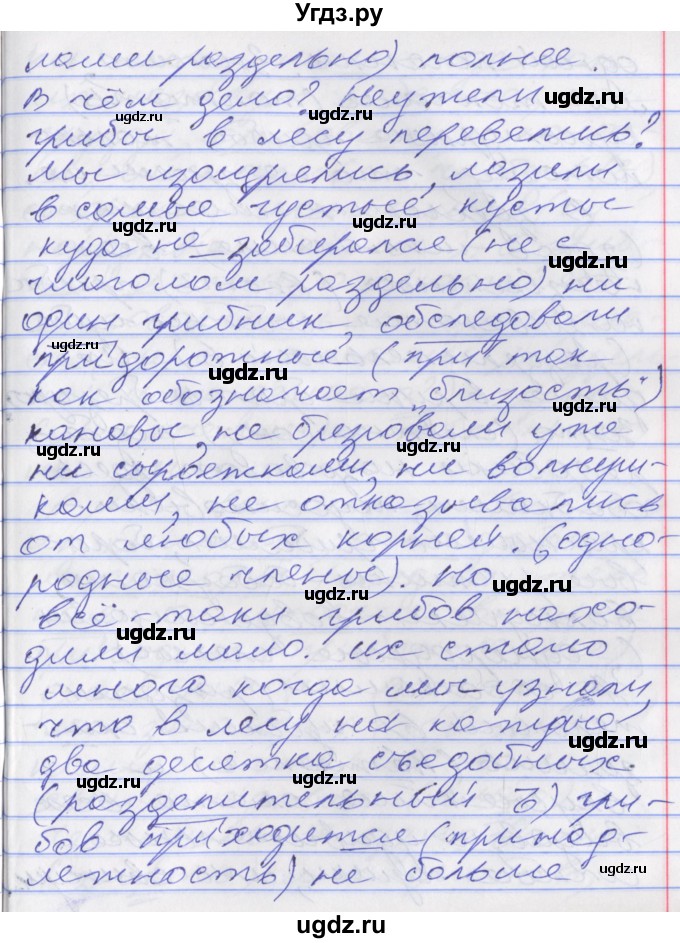 Угдз.ру
лами раздельно) полнее.
В чём дело? Неужели
грибы в лесу перевелись?
Мы изощрелись, лазили
в самые густые кусты
куда не забирался (не с
глаголом раздельно) ни
один грибник, обследовали
придорожные (при так
как обозначает „близость")
канавы, не брезговали уже
ни сыроежками, ни волнуш-
ками, не отказывались
от любых корней. (одно-
родные члены). Но
всё-таки грибов нахо-
дили мало. Их стало
много когда мы узнали,
что в лесу на каждые
два десятка съедобных.
(разделительный Ъ) гри-
бов приходится (принад-
лежность) не больше
ugdz.ru